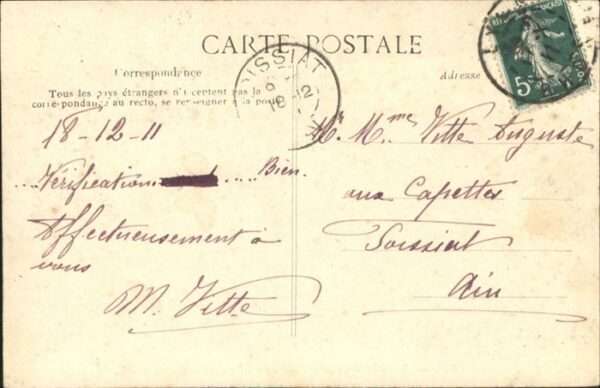 CARTE POSTALE
Correspondence
Adresse
Tous les pays étrangers n'acceptent pas la
correspondance au recto, se renseigner à la poste
18-12-11
...Vérification ........ Bien.
Affectueusement à
vous
M. Vitte
SSIAT
18-12
5
Mr Mme Vitte Auguste
aux Capettes
Soissiat
Ain